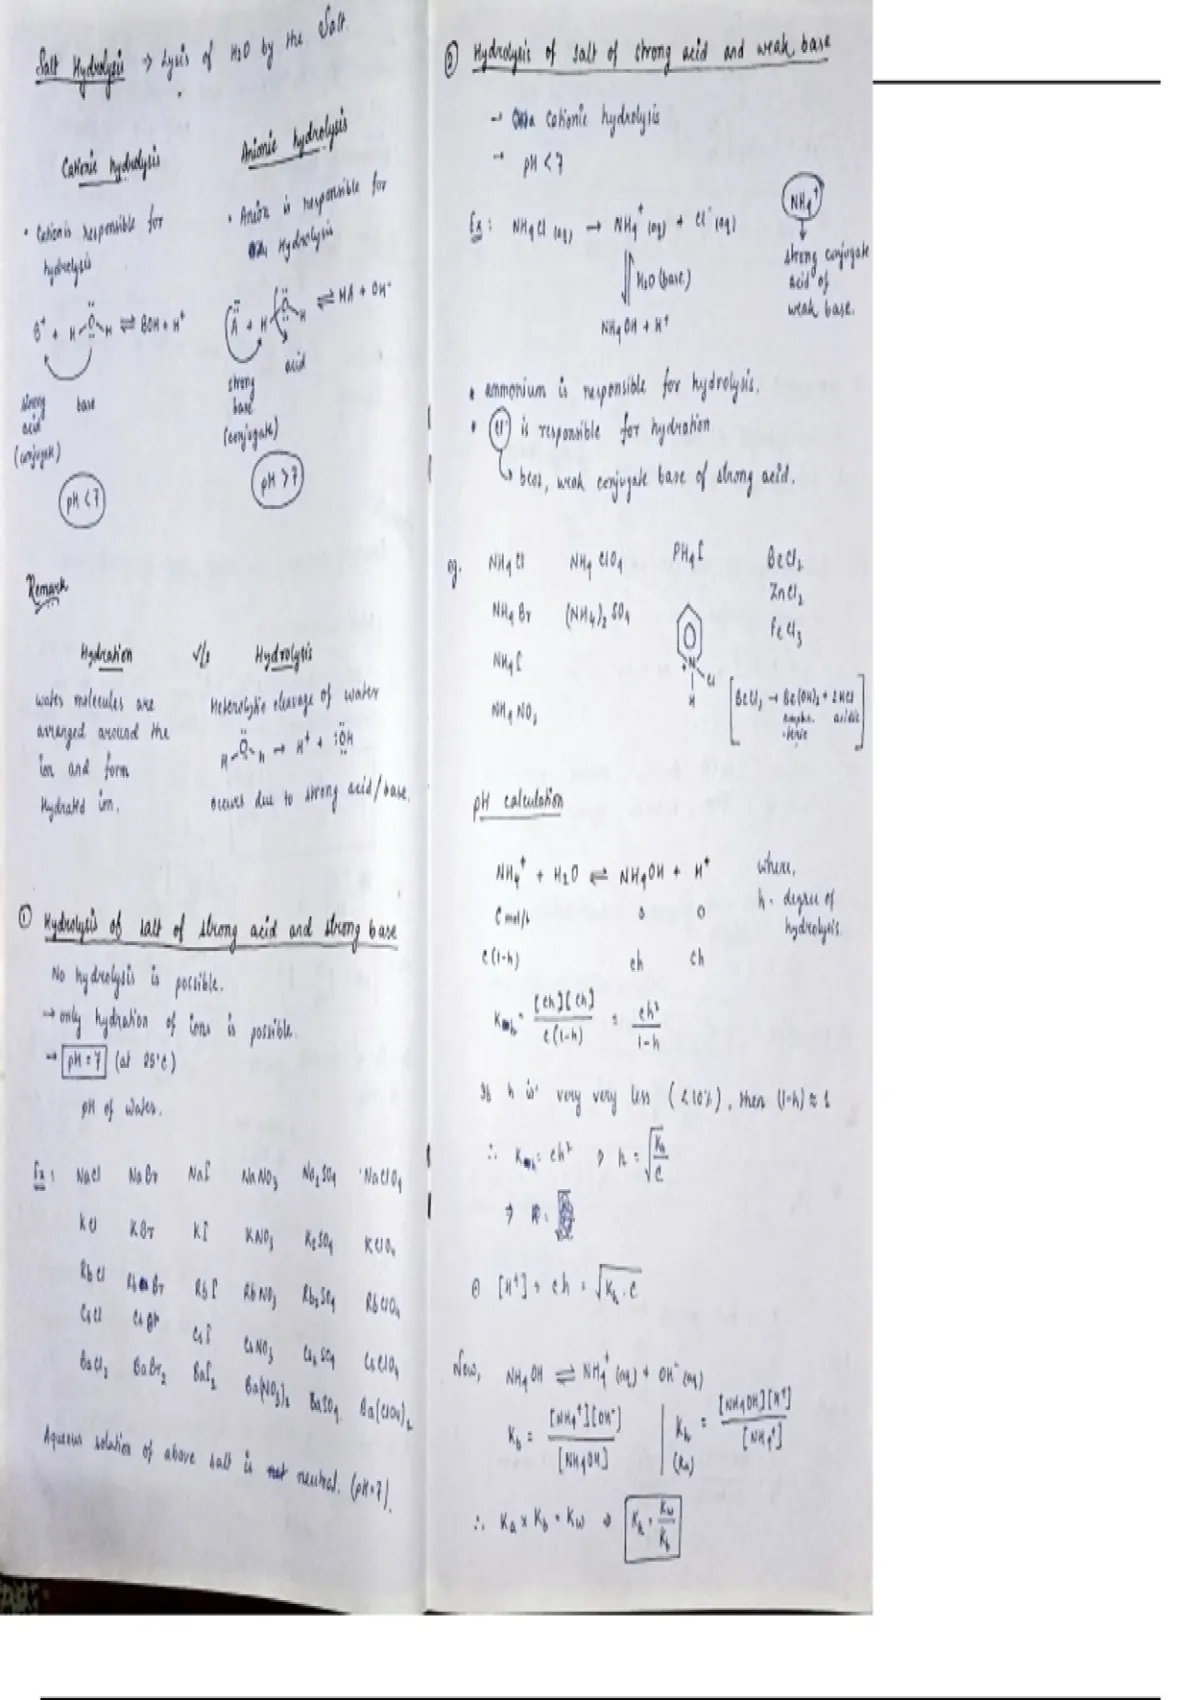 Salt Hydrolysis → Lysis of H2O by the Salt.
Cationic hydrolysis
• Cation is responsible for
hydrolysis
B+ + H-O-H ⇌ BOH + H+
strong base
acid
(conjugate)
pH < 7
Anionic hydrolysis
• Anion is responsible for
Hydrolysis
A + H-O-H ⇌ HA + OH-
acid
strong
base
(conjugate)
pH > 7
Remark
Hydration v/s Hydrolysis
water molecules are
arranged around the
ion and form
Hydrated ion.
Heterolytic cleavage of water
H-O-H → H+ + :OH
occurs due to strong acid/base.
① Hydrolysis of salt of strong acid and strong base
No hydrolysis is possible.
→ only hydration of ions is possible.
→ pH = 7 (at 25°C)
pH of water.
Ex: NaCl NaBr NaI NaNO3 Na2SO4 NaClO4
KCl KBr KI KNO3 K2SO4 KClO4
RbCl RbBr RbI RbNO3 Rb2SO4 RbClO4
CsCl CsBr CsI CsNO3 Cs2SO4 CsClO4
BaCl2 BaBr2 BaI2 Ba(NO3)2 BaSO4 Ba(ClO4)2
Aqueous solution of above salt is neutral. (pH=7).
② Hydrolysis of salt of strong acid and weak base
→ Cationic hydrolysis
→ pH < 7
Ex: NH4Cl (aq) → NH4+ (aq) + Cl- (aq)
H2O (base)
NH4OH + H+
NH4+
strong conjugate
acid of
weak base.
• ammonium is responsible for hydrolysis.
• Cl- is responsible for hydration
↳ bcoz, weak conjugate base of strong acid.
eg. NH4Cl NH4ClO4 PH4I BeCl2
NH4Br (NH4)2SO4 ZnCl2
NH4I FeCl3
NH4NO3
N Cl
H
[BeCl2 → Be(OH)2 + 2HCl
acidic]
pH calculation
NH4+ + H2O ⇌ NH4OH + H+
C mol/L 0 0
C(1-h) ch ch
where,
h = degree of
hydrolysis.
Kh = [ch][ch] / c(1-h) = ch² / 1-h
If h is very very less (<10%), then (1-h) ≈ 1
∴ Kh = ch² ⇒ h = √Kh/C
[H+] = ch = √Kh.C
Now, NH4OH ⇌ NH4+ (aq) + OH- (aq)
Kb = [NH4+][OH-] / [NH4OH] | Kh = [NH4OH][H+] / [NH4+]
(Ka)
∴ Ka x Kb = Kw ⇒ Kh = Kw/Kb